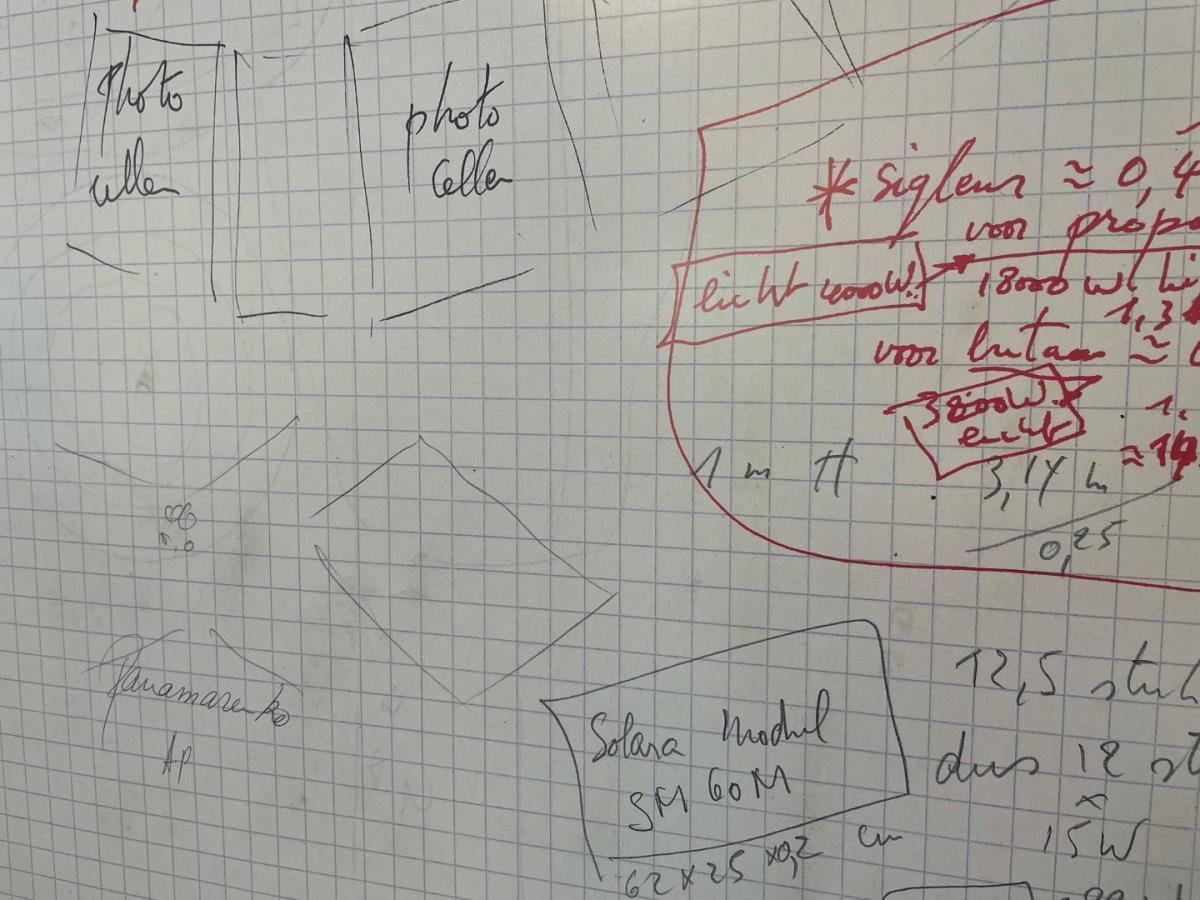 photo
cellen
photo
cellen
* sigleur ≈ 0,4
voor propa
licht 4000W!
18000 W
1,3
voor butaan ≈
3800W
licht
1.
≈ 14
1 m H
3,14 m
0,25
Panamarenko
AP
Solara Modul
SM 60M
62 x 25 x0,2 cm
12,5 stuk
dus 12 st
x
15W